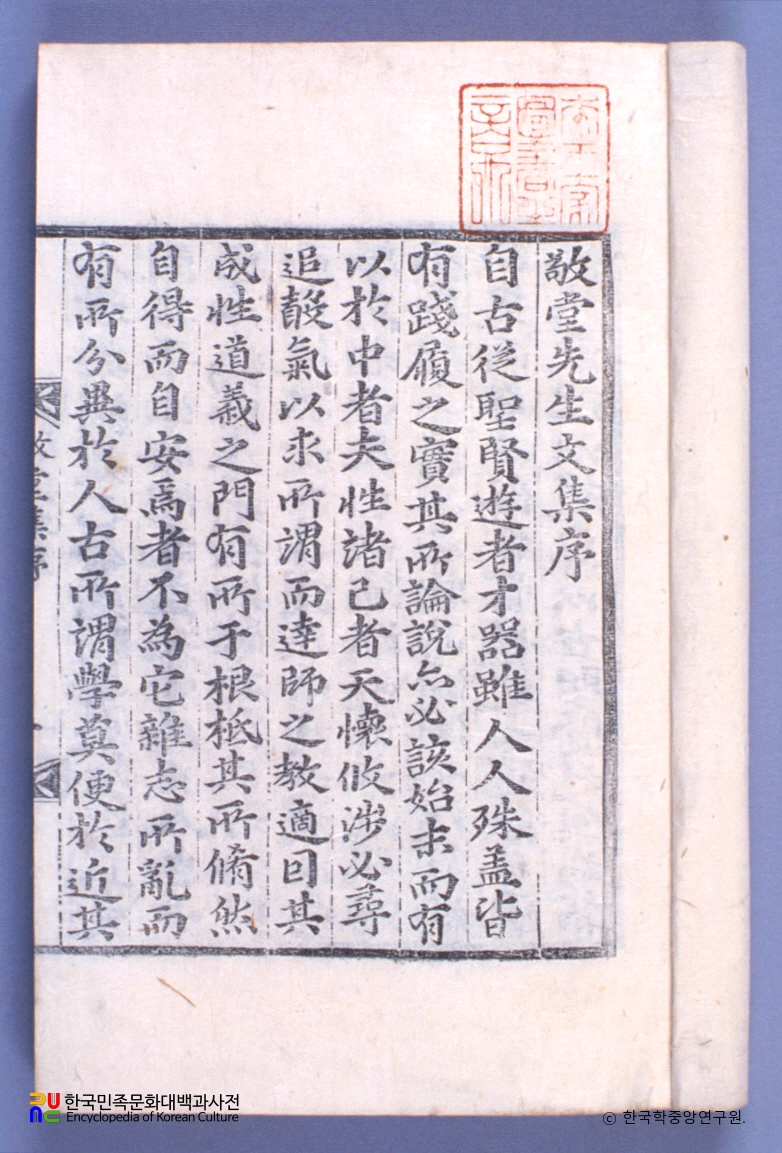 敬堂先生文集序
自古從聖賢遊者才器雖人人殊盖皆
有踐履之實其所論說亦必該始末而有
以於中者夫性諸己者天懷攸涉必尋
追氣以求所謂而達師之教適因其
成性道義之門有所于根柢其所脩然
自得而自安焉者不為它雜志所亂而
有所分異於人古所謂學莫便於近其
敬堂集序
한국민족문화대백과사전
Encyclopedia of Korean Culture
© 한국학중앙연구원.